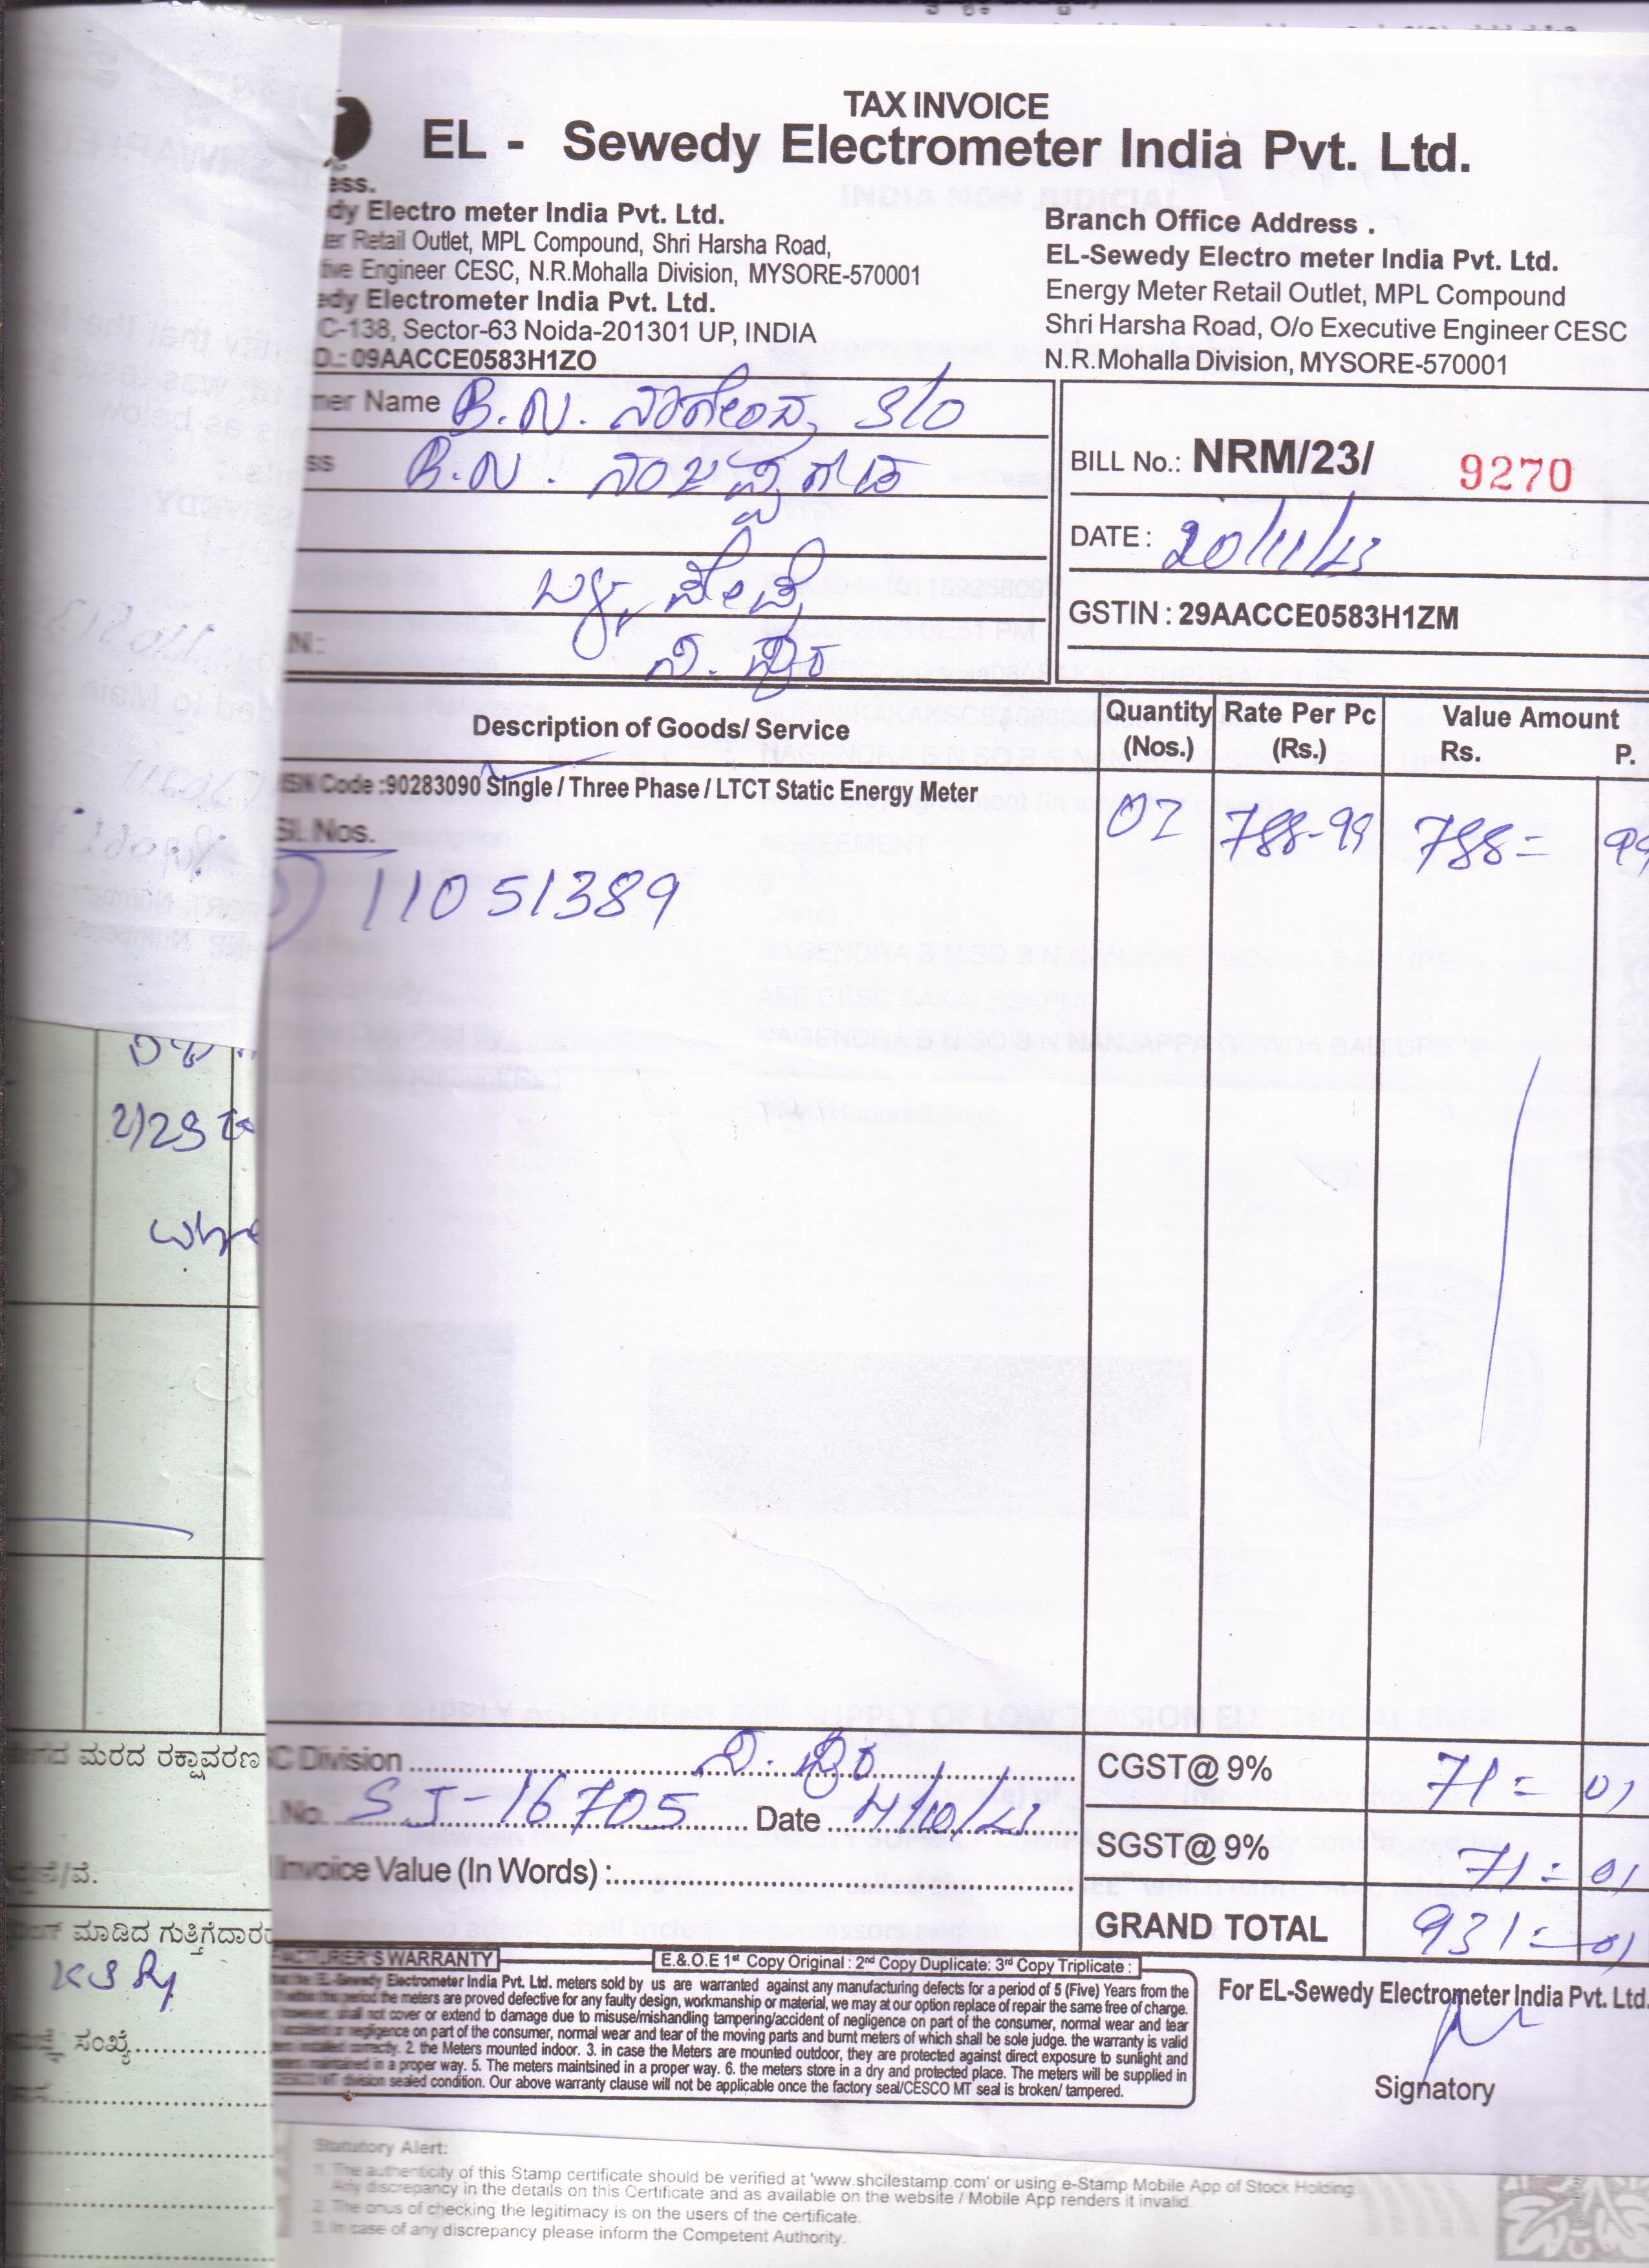 TAX INVOICE
EL - Sewedy Electrometer India Pvt. Ltd.
ess.
dy Electro meter India Pvt. Ltd.
er Retail Outlet, MPL Compound, Shri Harsha Road,
tive Engineer CESC, N.R.Mohalla Division, MYSORE-570001
edy Electrometer India Pvt. Ltd.
C-138, Sector-63 Noida-201301 UP, INDIA
O.: 09AACCE0583H1ZO
Branch Office Address .
EL-Sewedy Electro meter India Pvt. Ltd.
Energy Meter Retail Outlet, MPL Compound
Shri Harsha Road, O/o Executive Engineer CESC
N.R.Mohalla Division, MYSORE-570001
mer Name B.N. ನಾಗೇಂದ್ರ S/O
ss B.N. ನಂಜಪ್ಪಗೌಡ
ಬಳ್ಳುಪೇಟೆ
N :
BILL No.: NRM/23/ 9270
DATE : 20/11/23
GSTIN : 29AACCE0583H1ZM
Description of Goods/ Service
Quantity (Nos.)
Rate Per Pc (Rs.)
Value Amount
Rs. P.
HSN Code :90283090 Single / Three Phase / LTCT Static Energy Meter
SI. Nos.
01 788-99 788= 99
11051389
C Division
No. SJ-16705 Date
Invoice Value (In Words) :
CGST@ 9% 71= 01
SGST@ 9% 71= 01
GRAND TOTAL 931= 01
FACTURER'S WARRANTY
E.& O.E 1st Copy Original : 2nd Copy Duplicate: 3rd Copy Triplicate :
EL-Sewedy Electrometer India Pvt. Ltd. meters sold by us are warranted against any manufacturing defects for a period of 5 (Five) Years from the
the meters are proved defective for any faulty design, workmanship or material, we may at our option replace of repair the same free of charge.
shall not cover or extend to damage due to misuse/mishandling tampering/accident of negligence on part of the consumer, normal wear and tear
negligence on part of the consumer, normal wear and tear of the moving parts and burnt meters of which shall be sole judge. the warranty is valid
correctly. 2. the Meters mounted indoor. 3. in case the Meters are mounted outdoor, they are protected against direct exposure to sunlight and
in a proper way. 5. The meters maintsined in a proper way. 6. the meters store in a dry and protected place. The meters will be supplied in
CESCO MT division sealed condition. Our above warranty clause will not be applicable once the factory seal/CESCO MT seal is broken/ tampered.
For EL-Sewedy Electrometer India Pvt. Ltd.
Signatory
ಮರದ ರಕ್ಷಾವರಣ
ಮಾಡಿದ ಗುತ್ತಿಗೆದಾರ
ಸಂಖ್ಯೆ
Statutory Alert:
1. The authenticity of this Stamp certificate should be verified at 'www.shcilestamp.com' or using e-Stamp Mobile App of Stock Holding.
Any discrepancy in the details on this Certificate and as available on the website / Mobile App renders it invalid.
2. The onus of checking the legitimacy is on the users of the certificate.
3. In case of any discrepancy please inform the Competent Authority.